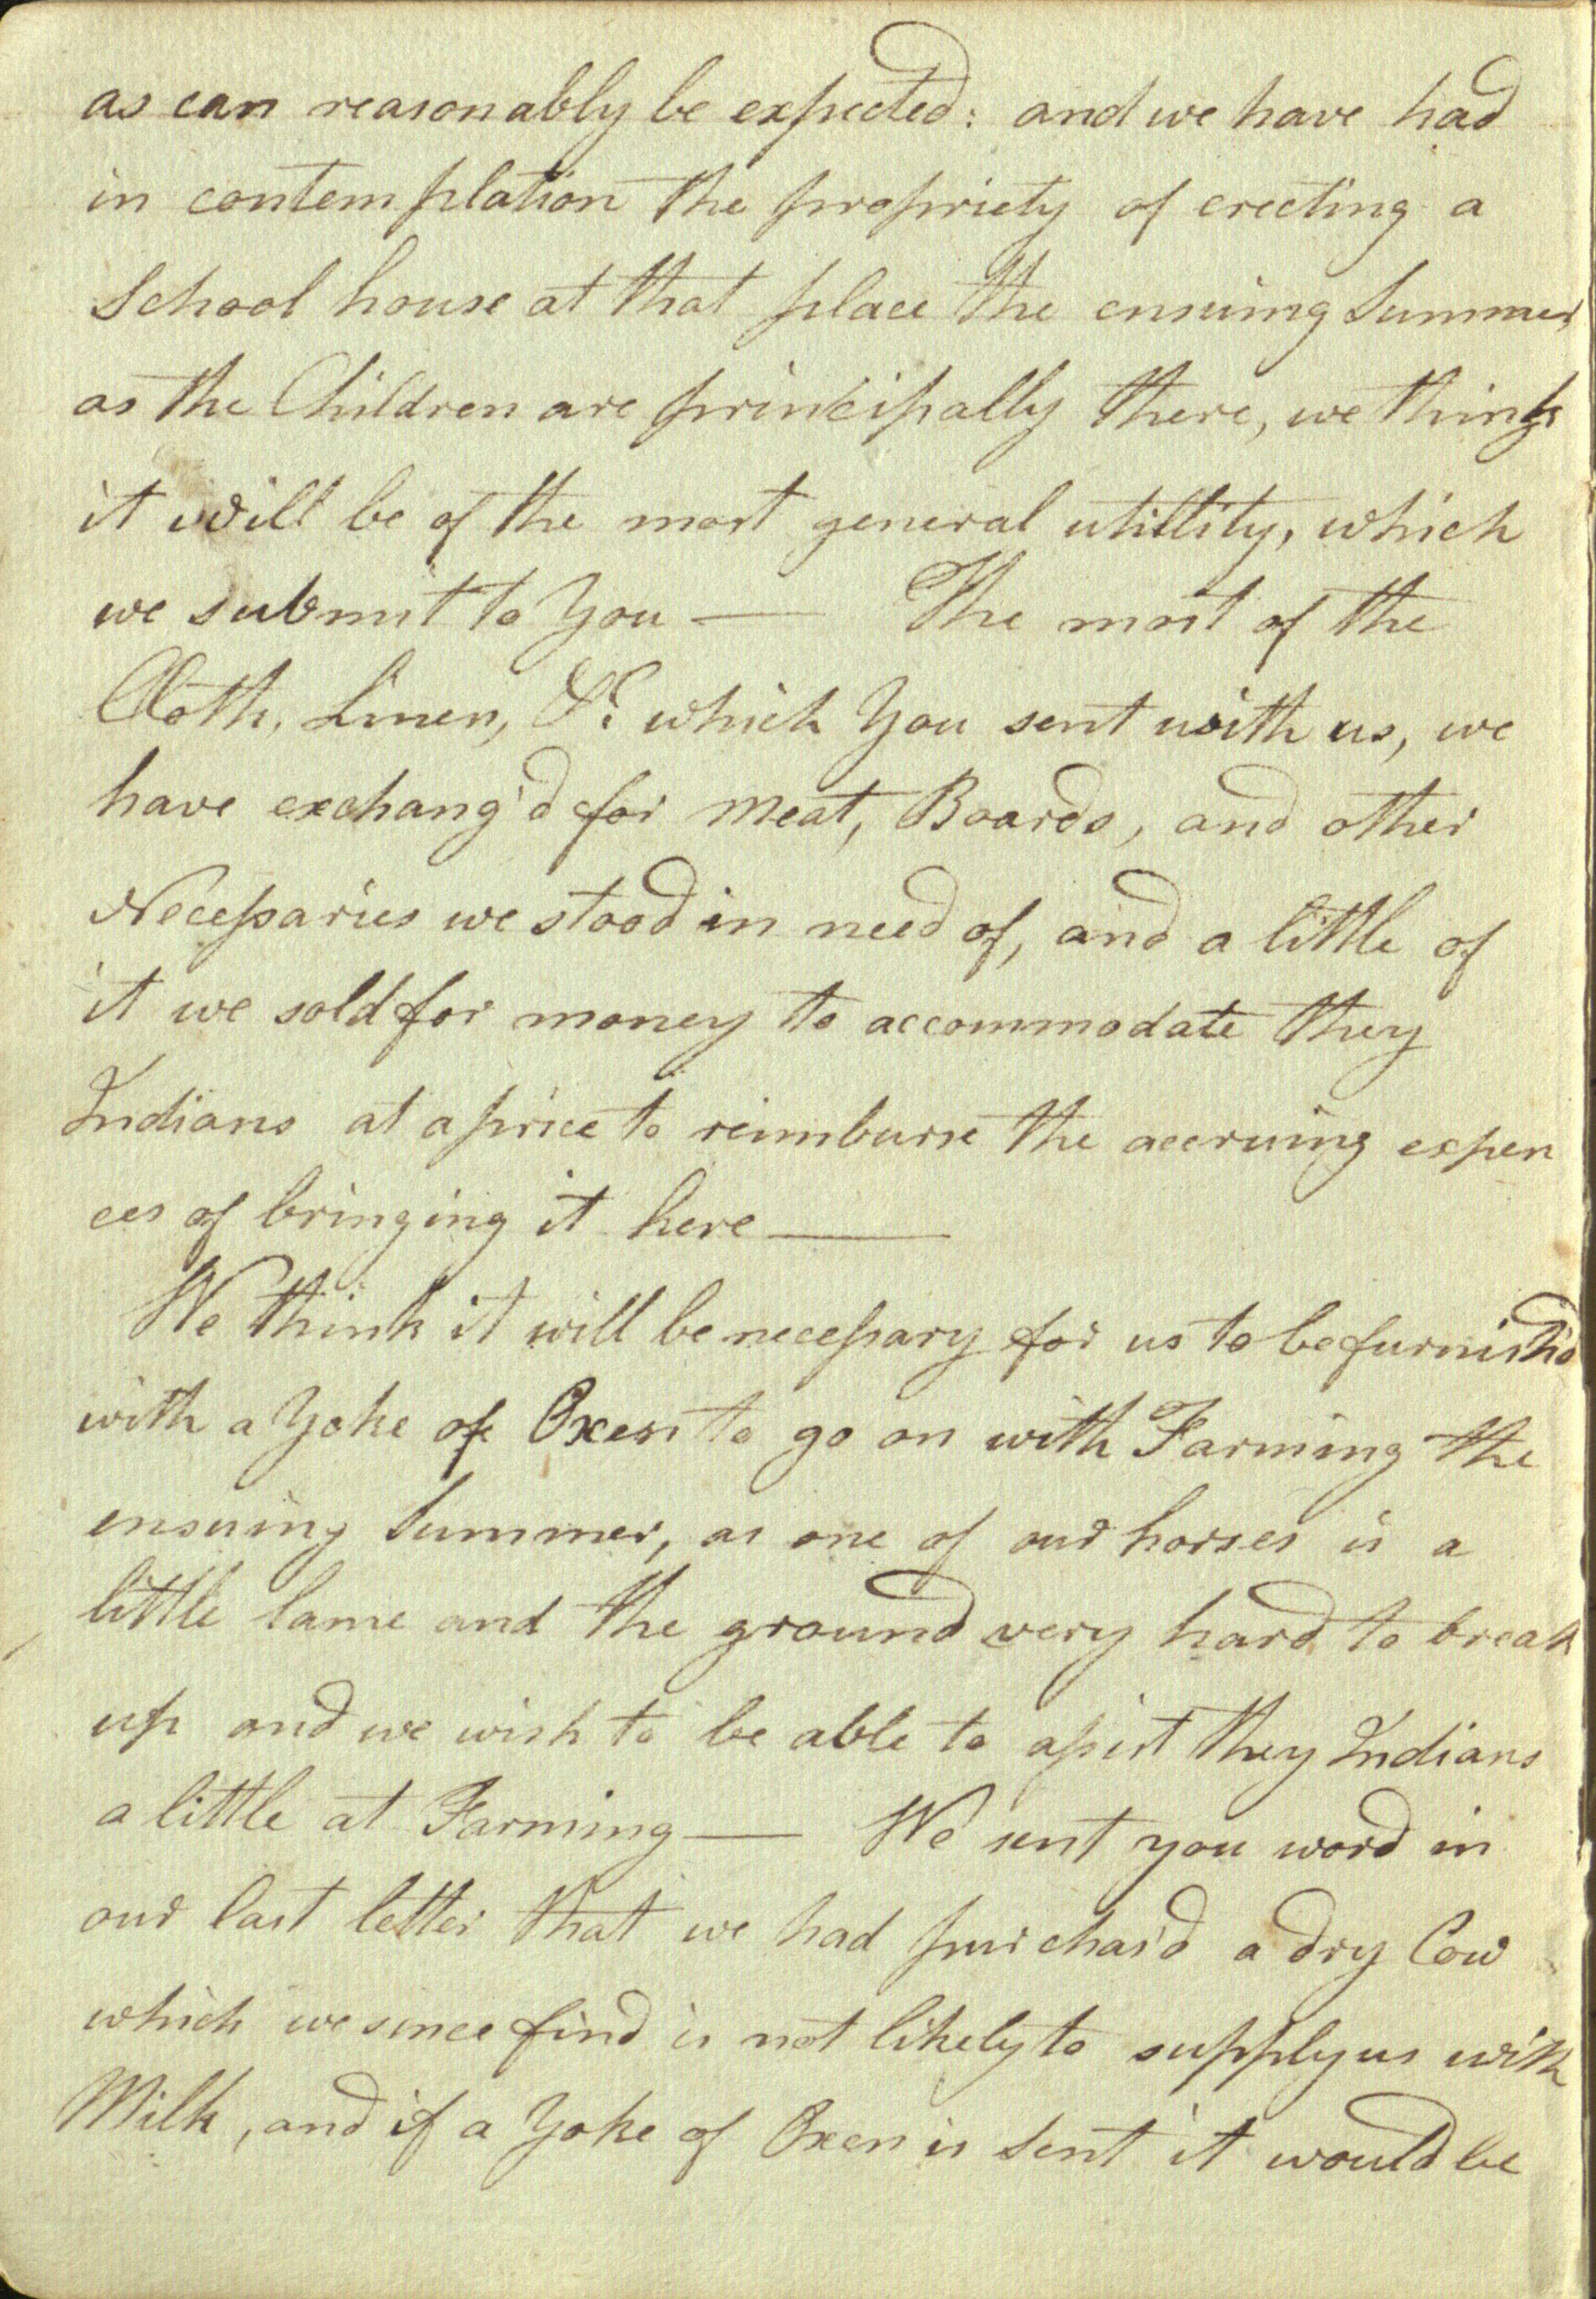 as can reasonably be expected: and we have had
in contemplation the propriety of erecting a
School house at that place the ensuing Summer,
as the Children are principally there, we think
it will be of the most general utillity, which
we submit to You — The most of the
Cloth, Linen, &c. which You sent with us, we
have exchang'd for Meat, Boards, and other
Necessaries we stood in need of, and a little of
it we sold for money to accommodate they
Indians at a price to reimburse the accruing expen
ces of bringing it here —
We think it will be necessary for us to be furnish'd
with a Yoke of Oxen to go on with Farming the
ensuing Summer, as one of our horses is a
little lame and the ground very hard to break
up and we wish to be able to assist they Indians
a little at Farming — We sent you word in
our last letter that we had purchas'd a dry Cow
which we since find is not likely to supply us with
Milk, and if a Yoke of Oxen is Sent it would be